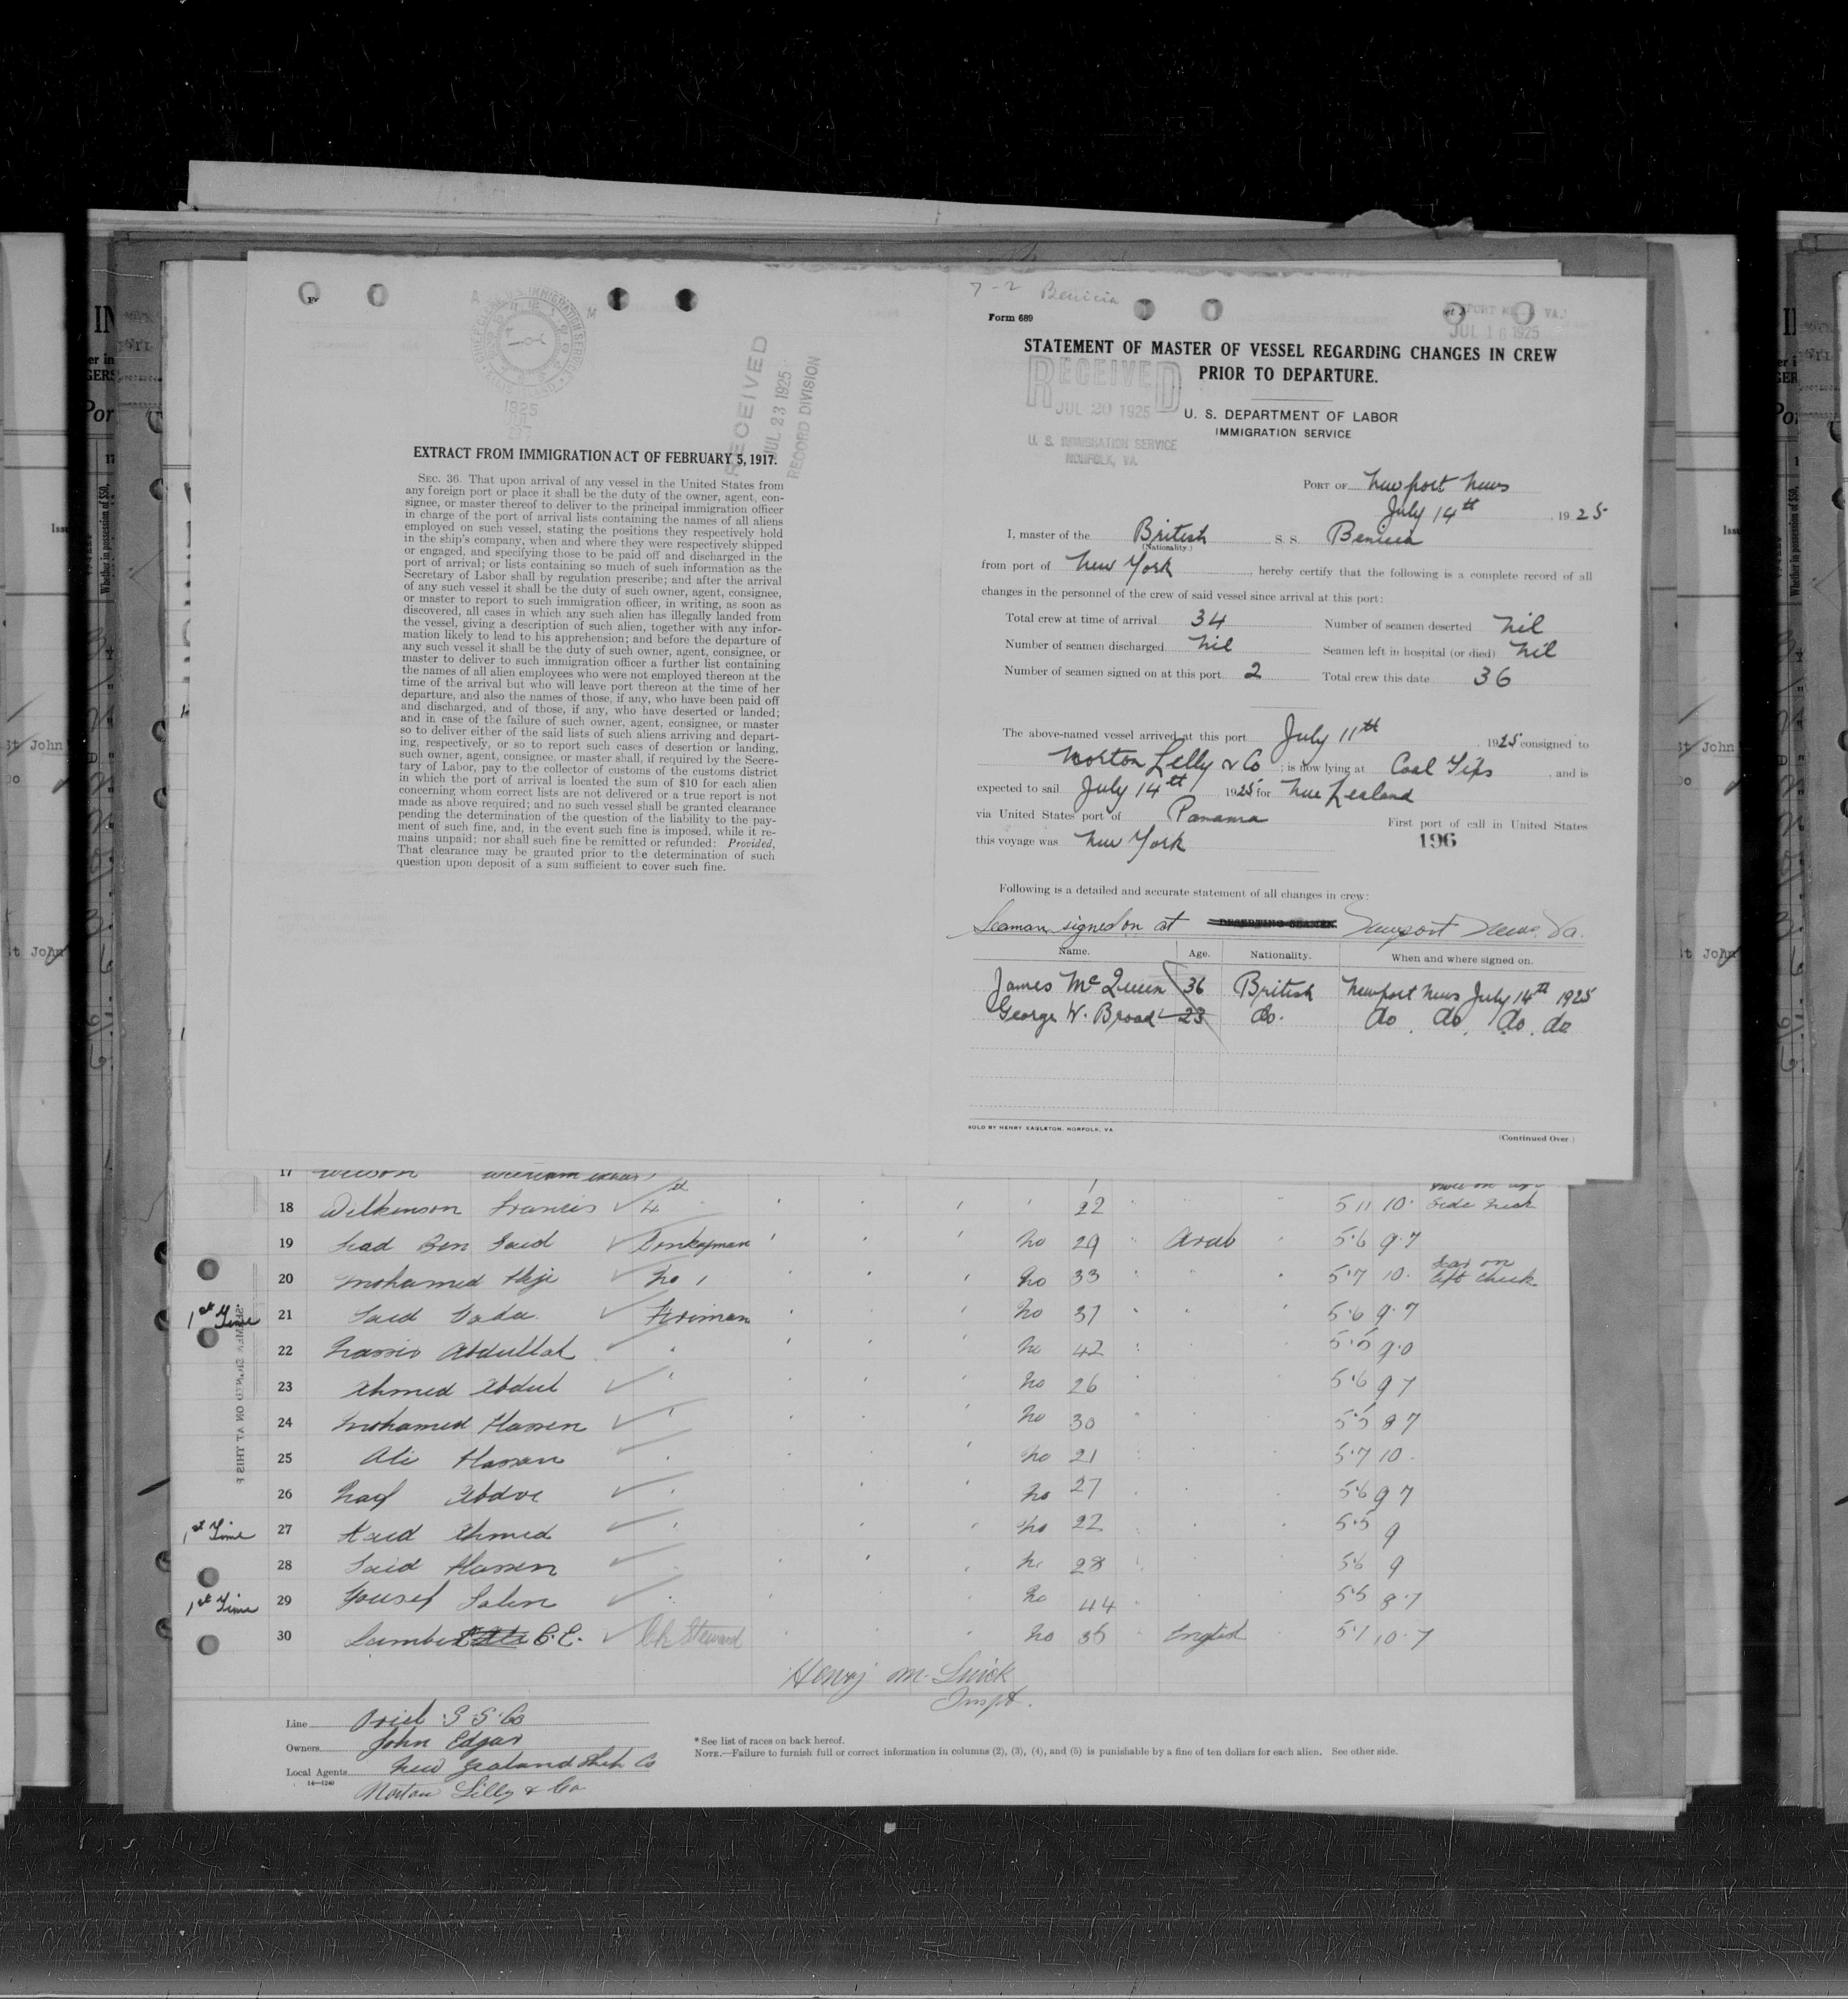 EXTRACT FROM IMMIGRATION ACT OF FEBRUARY 5, 1917.
SEC. 36. That upon arrival of any vessel in the United States from
any foreign port or place it shall be the duty of the owner, agent, con-
signee, or master thereof to deliver to the principal immigration officer
in charge of the port of arrival lists containing the names of all aliens
employed on such vessel, stating the positions they respectively hold
in the ship's company, when and where they were respectively shipped
or engaged, and specifying those to be paid off and discharged in the
port of arrival; or lists containing so much of such information as the
Secretary of Labor shall by regulation prescribe; and after the arrival
of any such vessel it shall be the duty of such owner, agent, consignee,
or master to report to such immigration officer, in writing, as soon as
discovered, all cases in which any such alien has illegally landed from
the vessel, giving a description of such alien, together with any infor-
mation likely to lead to his apprehension; and before the departure of
any such vessel it shall be the duty of such owner, agent, consignee, or
master to deliver to such immigration officer a further list containing
the names of all alien employees who were not employed thereon at the
time of the arrival but who will leave port thereon at the time of her
departure, and also the names of those, if any, who have been paid off
and discharged, and of those, if any, who have deserted or landed;
and in case of the failure of such owner, agent, consignee, or master
so to deliver either of the said lists of such aliens arriving and depart-
ing, respectively, or so to report such cases of desertion or landing,
such owner, agent, consignee, or master, shall, if required by the Secre-
tary of Labor, pay to the collector of customs of the customs district
in which the port of arrival is located the sum of $10 for each alien
concerning whom correct lists are not delivered or a true report is not
made as above required; and no such vessel shall be granted clearance
pending the determination of the question of the liability to the pay-
ment of such fine, and, in the event such fine is imposed, while it re-
mains unpaid; nor shall such fine be remitted or refunded: Provided,
That clearance may be granted prior to the determination of such
question upon deposit of a sum sufficient to cover such fine.
RECEIVED
JUL 23 1925
RECORD DIVISION
7-2 Benicia
Form 689
JUL 16 1925
STATEMENT OF MASTER OF VESSEL REGARDING CHANGES IN CREW
PRIOR TO DEPARTURE.
RECEIVED
JUL 20 1925
U. S. IMMIGRATION SERVICE
NORFOLK, VA.
U. S. DEPARTMENT OF LABOR
IMMIGRATION SERVICE
PORT OF Newport News
July 14th, 1925
I, master of the British S. S. Benicia
(Nationality.)
from port of New York, hereby certify that the following is a complete record of all
changes in the personnel of the crew of said vessel since arrival at this port:
Total crew at time of arrival 34 Number of seamen deserted nil
Number of seamen discharged nil Seamen left in hospital (or died) nil
Number of seamen signed on at this port 2 Total crew this date 36
The above-named vessel arrived at this port July 11th, 1925 consigned to
Norton Lilly & Co; is now lying at Coal Tips, and is
expected to sail July 14th 1925 for New Zealand
via United States port of Panama First port of call in United States
this voyage was New York 196
Following is a detailed and accurate statement of all changes in crew:
Seaman signed on at DESERTING SEAMEN Newport News, Va.
Name. Age. Nationality. When and where signed on.
James McQueen 36 British Newport News July 14th 1925
George W. Broad 23 do. do. do. do. do
SOLD BY HENRY EAGLETON, NORFOLK, VA
(Continued Over.)
17 Wilson William
18 Wilkinson Francis 4th 22 5 11 10 side neck
19 Said Donkeyman no 29 Arab 5.6 9.7
20 Mohamed no 1 no 33 5.7 10 Scar on left cheek
1st Time 21 Said Fireman no 37 5.6 9.7
22 Abdullah no 42 5.5 9.0
23 Ahmed Abdul no 26 5.6 9 7
24 Mohamed Hassen no 30 5.5 8 7
25 Ali Hassen no 21 5.7 10
26 no 27 5.6 9 7
1st Time 27 Kaid Ahmed no 22 5.5 9
28 Said Hassen no 28 5.6 9
1st Time 29 Yousef Saleh no 44 5.5 8.7
30 Lambert C.E. Ch Steward no 35 English 5.7 10.7
Inspt.
Line Oriel S S Co
Owners John Edgar
Local Agents New Zealand Ship Co
14—1240
Norton Lilly & Co
* See list of races on back hereof.
NOTE.—Failure to furnish full or correct information in columns (2), (3), (4), and (5) is punishable by a fine of ten dollars for each alien. See other side.